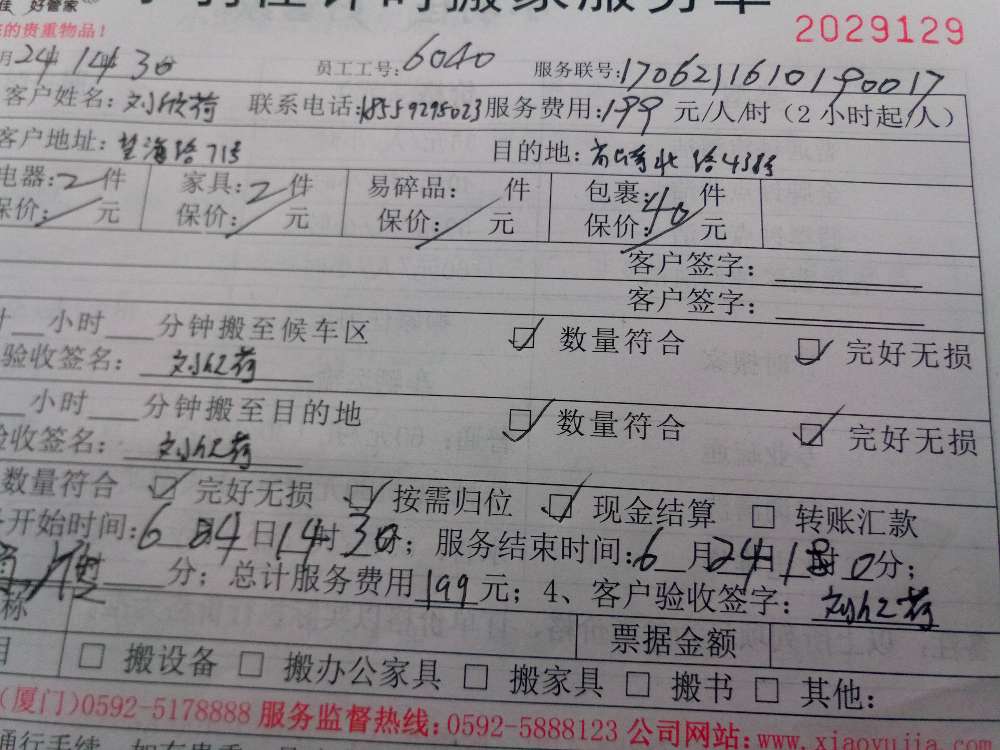 佳 好管家
计时搬家服务单
的贵重物品!
2029129
月24 14 30 员工工号:6040 服务联号:170621161019 0017
客户姓名:刘欣荷 联系电话:18559295023 服务费用:199 元/人/时(2小时起/人)
客户地址:望海路71号 目的地:高崎北路438号
电器:2件 家具:2件 易碎品: 件 包裹:40件
保价: 元 保价: 元 保价: 元 保价: 元
客户签字:
客户签字:
时 小时 分钟搬至候车区 ☑ 数量符合 ☑ 完好无损
验收签名:刘欣荷
小时 分钟搬至目的地 ☑ 数量符合 ☑ 完好无损
验收签名:刘欣荷
数量符合 ☑ 完好无损 ☑ 按需归位 ☑ 现金结算 □ 转账汇款
开始时间:6 24日14时30分;服务结束时间:6月24日18时0分;
分;总计服务费用199元;4、客户验收签字:刘欣荷
称 票据金额
目 □ 搬设备 □ 搬办公家具 □ 搬家具 □ 搬书 □ 其他:
(厦门)0592-5178888 服务监督热线:0592-5888123 公司网站:www.xiaoyujia.com